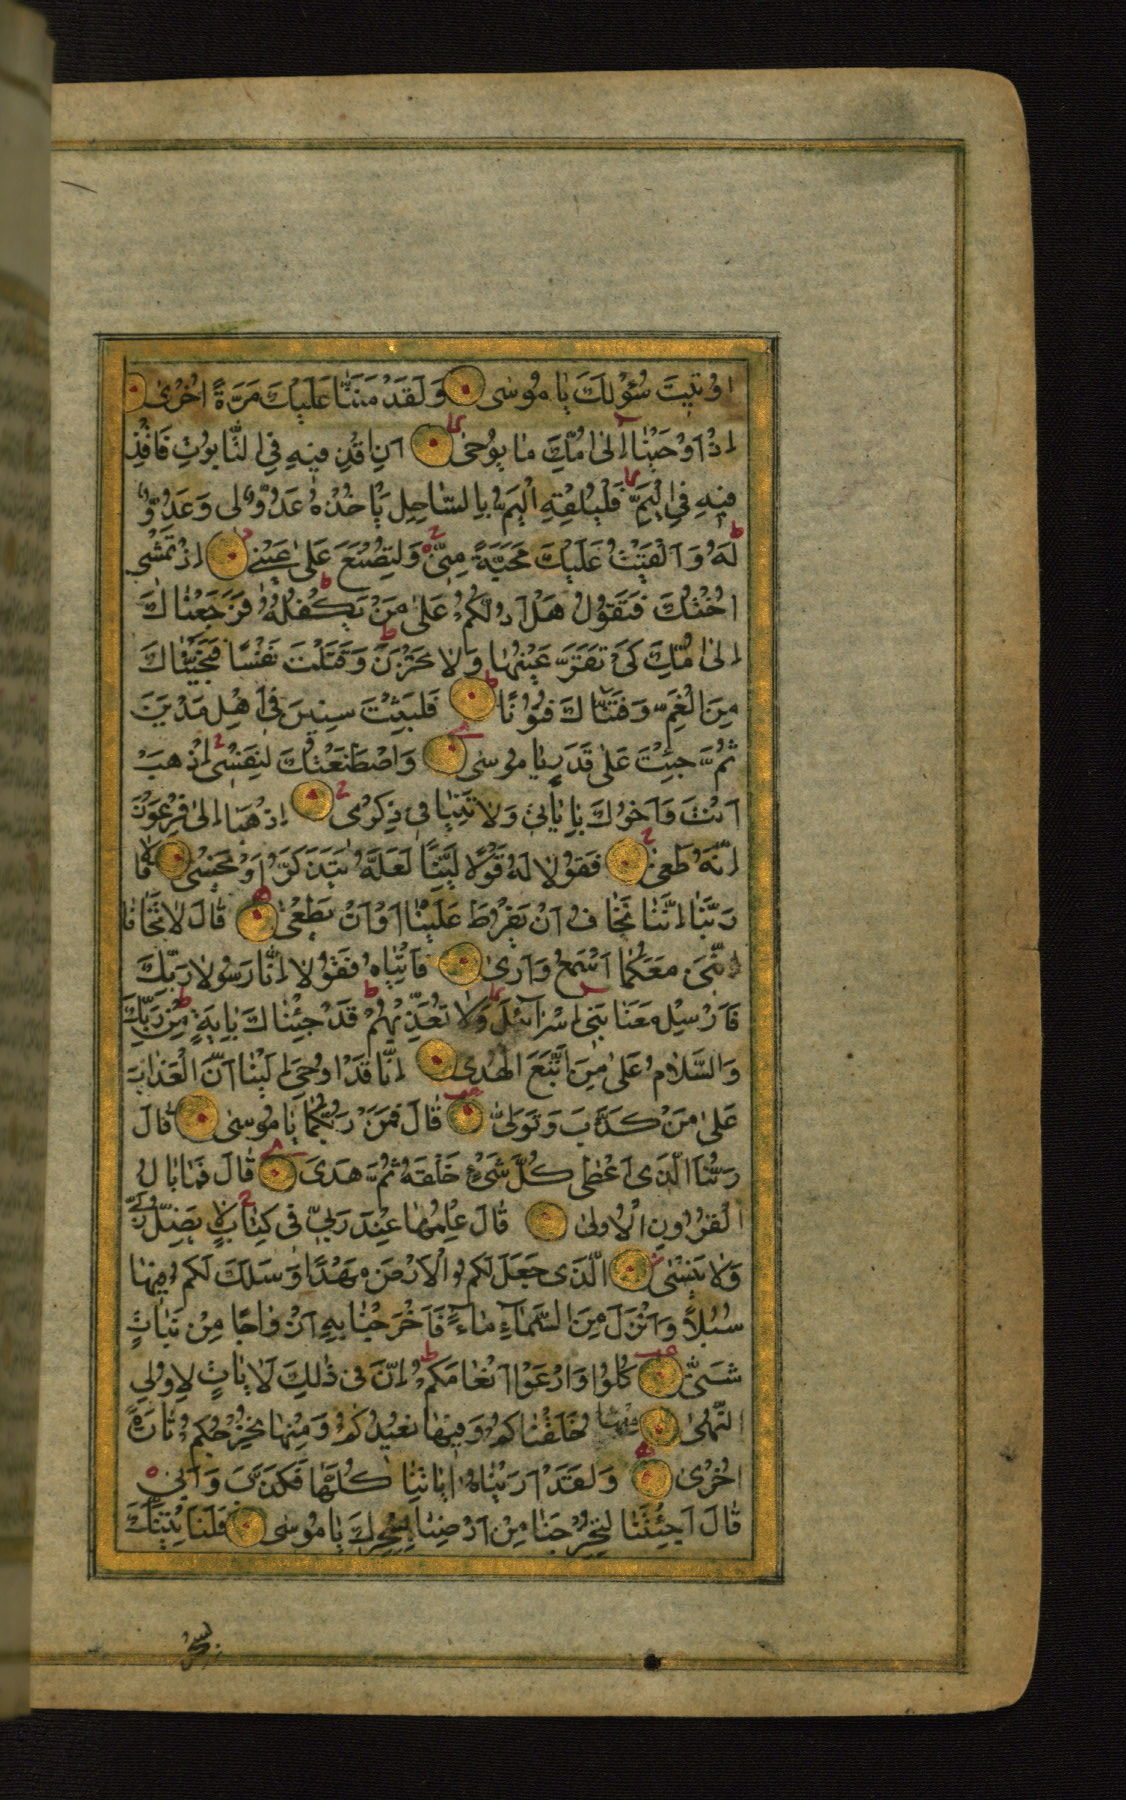 اوُتيتَ سُؤْلَكَ يٰا مُوسٰى وَلَقَدْ مَنَنّٰا عَلَيْكَ مَرَّةً اخُرْىٰ
اِذْ اَوْحَيْنٰا اِلىٰ اُمِّكَ مٰا يوُحىٰ اَنِ اقْذِفيهِ فِي التّٰابوُتِ فَاقْذِ
فيهِ فِي الْيَمِّ فَلْيُلْقِهِ الْيَمُّ بِالسّٰاحِلِ يَأْخُذْهُ عَدُوٌّ لى وَعَدُوٌّ
لَهُ وَاَلْقَيْتُ عَلَيْكَ مَحَبَّةً مِنّى وَلِتُصْنَعَ عَلىٰ عَيْنى اِذْ تَمْشى
اُخْتُكَ فَتَقوُلُ هَلْ اَدُلُّكُمْ عَلىٰ مَنْ يَكْفُلُهُ فَرَجَعْنٰاكَ
اِلىٰ اُمِّكَ كَىْ تَقَرَّ عَيْنُهٰا وَلٰا تَحْزَنَ وَقَتَلْتَ نَفْسًا فَنَجَّيْنٰاكَ
مِنَ الْغَمِّ وَفَتَنّٰاكَ فُتوُنًا فَلَبِثْتَ سِنينَ فى اَهْلِ مَدْيَنَ
ثُمَّ جِئْتَ عَلىٰ قَدَرٍ يٰا موُسىٰ وَاصْطَنَعْتُكَ لِنَفْسى اِذْهَبْ
اَنْتَ وَاَخوُكَ بِاٰيٰاتى وَلٰا تَنِيٰا فى ذِكْرى اِذْهَبٰا اِلىٰ فِرْعَوْنَ
اِنَّهُ طَغىٰ فَقوُلٰا لَهُ قَوْلًا لَيِّنًا لَعَلَّهُ يَتَذَكَّرُ اَوْ يَخْشىٰ قٰا
رَبَّنٰا اِنَّنٰا نَخٰافُ اَنْ يَفْرُطَ عَلَيْنٰا اَوْ اَنْ يَطْغىٰ قٰالَ لٰا تَخٰافٰا
اِنَّنى مَعَكُمٰا اَسْمَعُ وَاَرىٰ فَأْتِيٰاهُ فَقوُلٰا اِنّٰا رَسوُلٰا رَبِّكَ
فَاَرْسِلْ مَعَنٰا بَنى اِسْرٰائيلَ وَلٰا تُعَذِّبْهُمْ قَدْ جِئْنٰاكَ بِاٰيَةٍ مِنْ رَبِّكَ
وَالسَّلٰامُ عَلىٰ مَنِ اتَّبَعَ الْهُدىٰ اِنّٰا قَدْ اوُحِىَ اِلَيْنٰا اَنَّ الْعَذٰابَ
عَلىٰ مَنْ كَذَّبَ وَتَوَلّىٰ قٰالَ فَمَنْ رَبُّكُمٰا يٰا موُسىٰ قٰالَ
رَبُّنَا الَّذى اَعْطىٰ كُلَّ شَىْءٍ خَلْقَهُ ثُمَّ هَدىٰ قٰالَ فَمٰا بٰالُ
الْقُروُنِ الْاوُلىٰ قٰالَ عِلْمُهٰا عِنْدَ رَبّى فى كِتٰابٍ لٰا يَضِلُّ رَبّى
وَلٰا يَنْسىٰ الَّذى جَعَلَ لَكُمُ الْاَرْضَ مَهْدًا وَسَلَكَ لَكُمْ فيهٰا
سُبُلًا وَاَنْزَلَ مِنَ السَّمٰاءِ مٰاءً فَاَخْرَجْنٰا بِهِ اَزْوٰاجًا مِنْ نَبٰاتٍ
شَتّىٰ كُلوُا وَارْعَوْا اَنْعٰامَكُمْ اِنَّ فى ذٰلِكَ لَاٰيٰاتٍ لِاوُلِى
النُّهىٰ مِنْهٰا خَلَقْنٰاكُمْ وَفيهٰا نُعيدُكُمْ وَمِنْهٰا نُخْرِجُكُمْ تٰارَةً
اُخْرىٰ وَلَقَدْ اَرَيْنٰاهُ اٰيٰاتِنٰا كُلَّهٰا فَكَذَّبَ وَاَبىٰ
قٰالَ اَجِئْتَنٰا لِتُخْرِجَنٰا مِنْ اَرْضِنٰا بِسِحْرِكَ يٰا موُسىٰ فَلَنَأْتِيَنَّكَ
بسحر